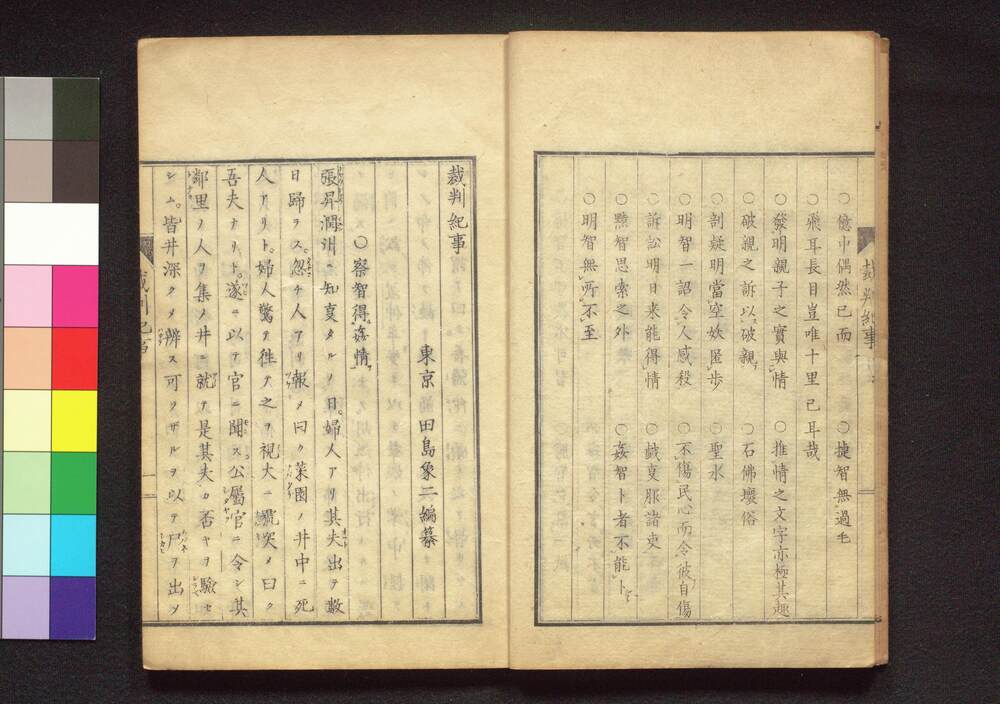 ○億中偶然已而　○捷智無過毛
○飛耳長目豈唯十里已耳哉
○發明親子之實與情　○推情之文字亦極其趣
○破親之訴以破親　○石佛壞俗
○剖疑明當空妖匿歩　○聖水
○明智一詔令人感殺　○不傷民心而令彼自傷
○訴訟明日来能得情　○戯叓服諸吏
○黙智思索之外　○姦智卜者不能卜
○明智無所不至
裁判紀事
裁判紀事
東京　田島象二編纂
○察智得姦情
張昇潤州ニ知叓タルノ日。婦人アリ其夫出テ數
日歸ラス。忽チ人アリ報メ曰ク菜園ノ井中ニ死
人アリト。婦人驚キ徃テ之ヲ視大ニ號哭メ曰ク
吾夫ナリト。遂ニ以テ官ニ聞ス。公屬官ニ令シ其
鄰里ノ人ヲ集メ井ニ就テ是其夫カ否ヤヲ驗セ
シム。皆井深クメ辨ス可ラザルヲ以テ尸ヲ出ノ